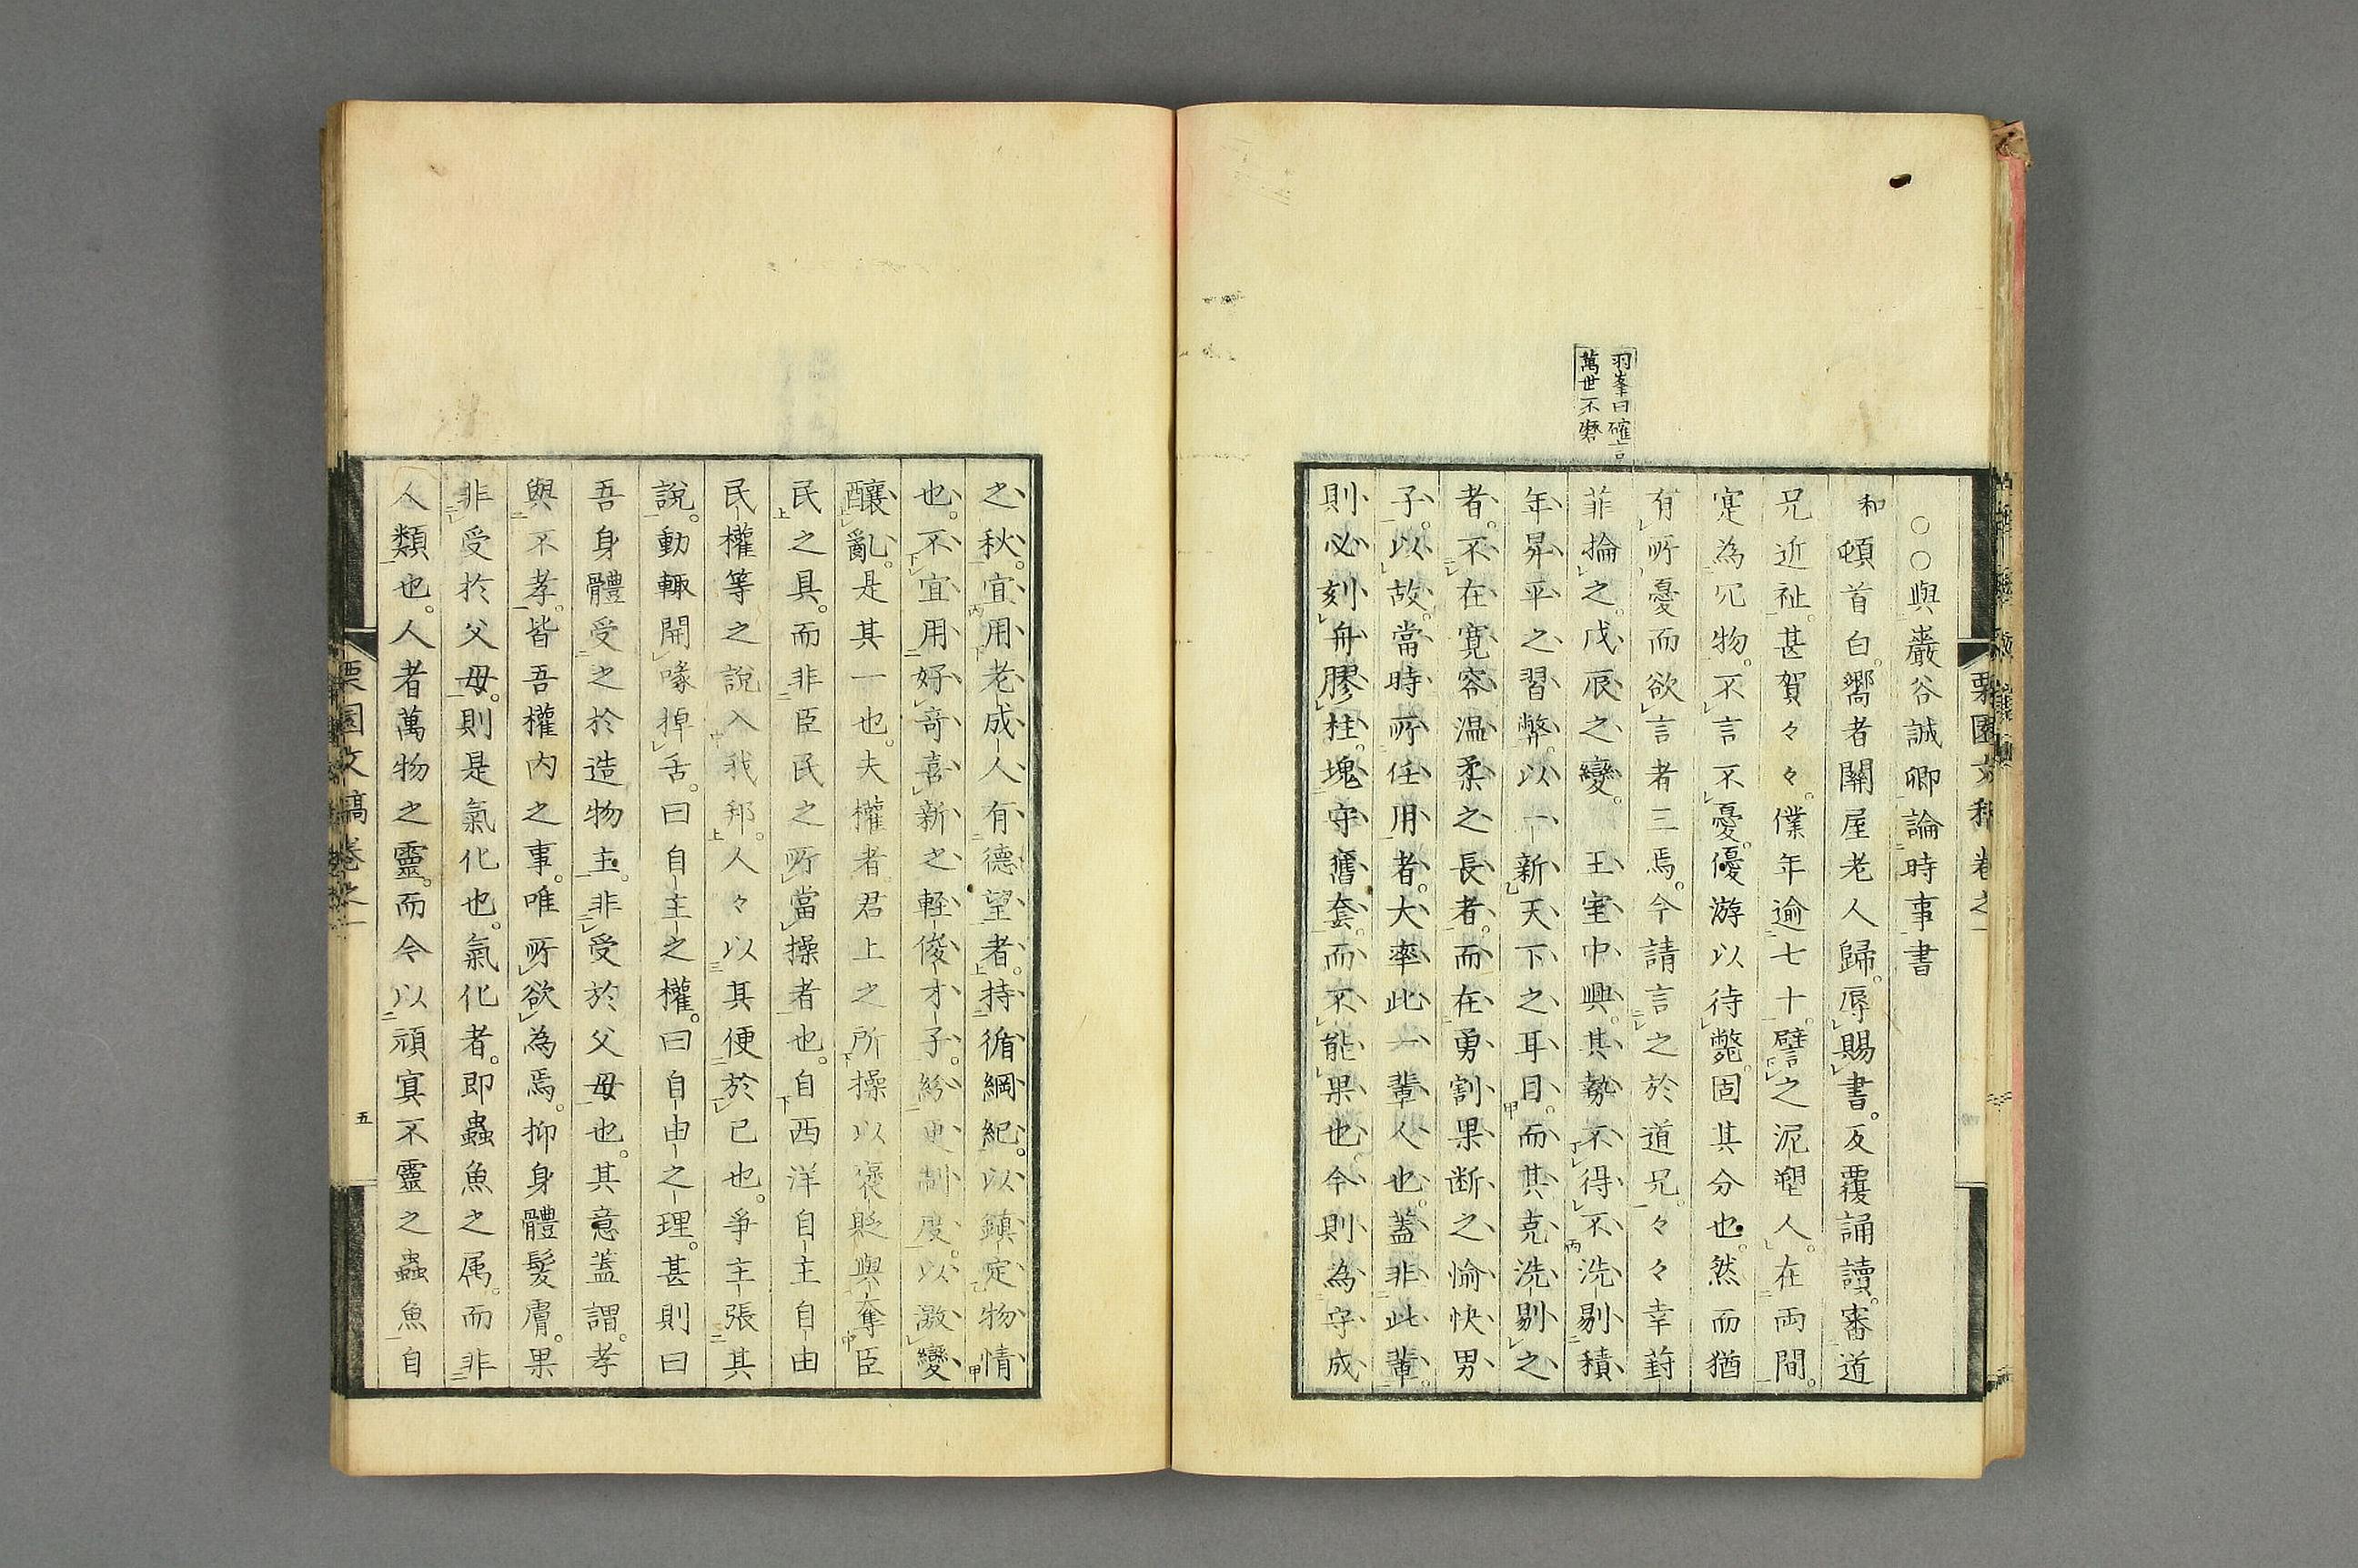 羽峯曰確言
萬世不磨
○○與巖谷誠卿論時事書
和頓首白。嚮者關屋老人歸。辱賜書。反覆誦讀。審道
兄近祉。甚賀々々。僕年逾七十。譬之泥塑人。在両間。
寔為冗物。不言不憂。優游以待斃。固其分也。然而猶
有所憂而欲言者三焉。今請言之於道兄。々々幸葑
菲掄之。戊辰之變。王室中興。其勢不得不洗剔積
年昇平之習弊。以一新天下之耳目。而其克洗剔之
者。不在寛容温柔之長者。而在勇割果断之愉快男
子。以故。當時所任用者。大率此一輩人也。蓋非此輩。
則必刻舟膠柱。塊守舊套。而不能果也。今則為守成
栗園文稿 卷之一
之秋。宜用老成人有德望者。持循綱紀。以鎮定物情
也。不宜用好奇喜新之軽俊才子。紛更制度。以激變
釀亂。是其一也。夫權者君上之所操以褒貶與奪臣
民之具。而非臣民之所當操者也。自西洋自主自由
民權等之說入我邦。人々以其便於己也。爭主張其
說。動輙開喙掉舌。曰自主之權。曰自由之理。甚則曰
吾身體受之於造物主。非受於父母也。其意蓋謂。孝
與不孝。皆吾權内之事。唯所欲為焉。抑身體髮膚。果
非受於父母。則是氣化也。氣化者。即蟲魚之属。而非
人類也。人者萬物之靈。而今以頑冥不靈之蟲魚自
栗園文稿卷之一
五